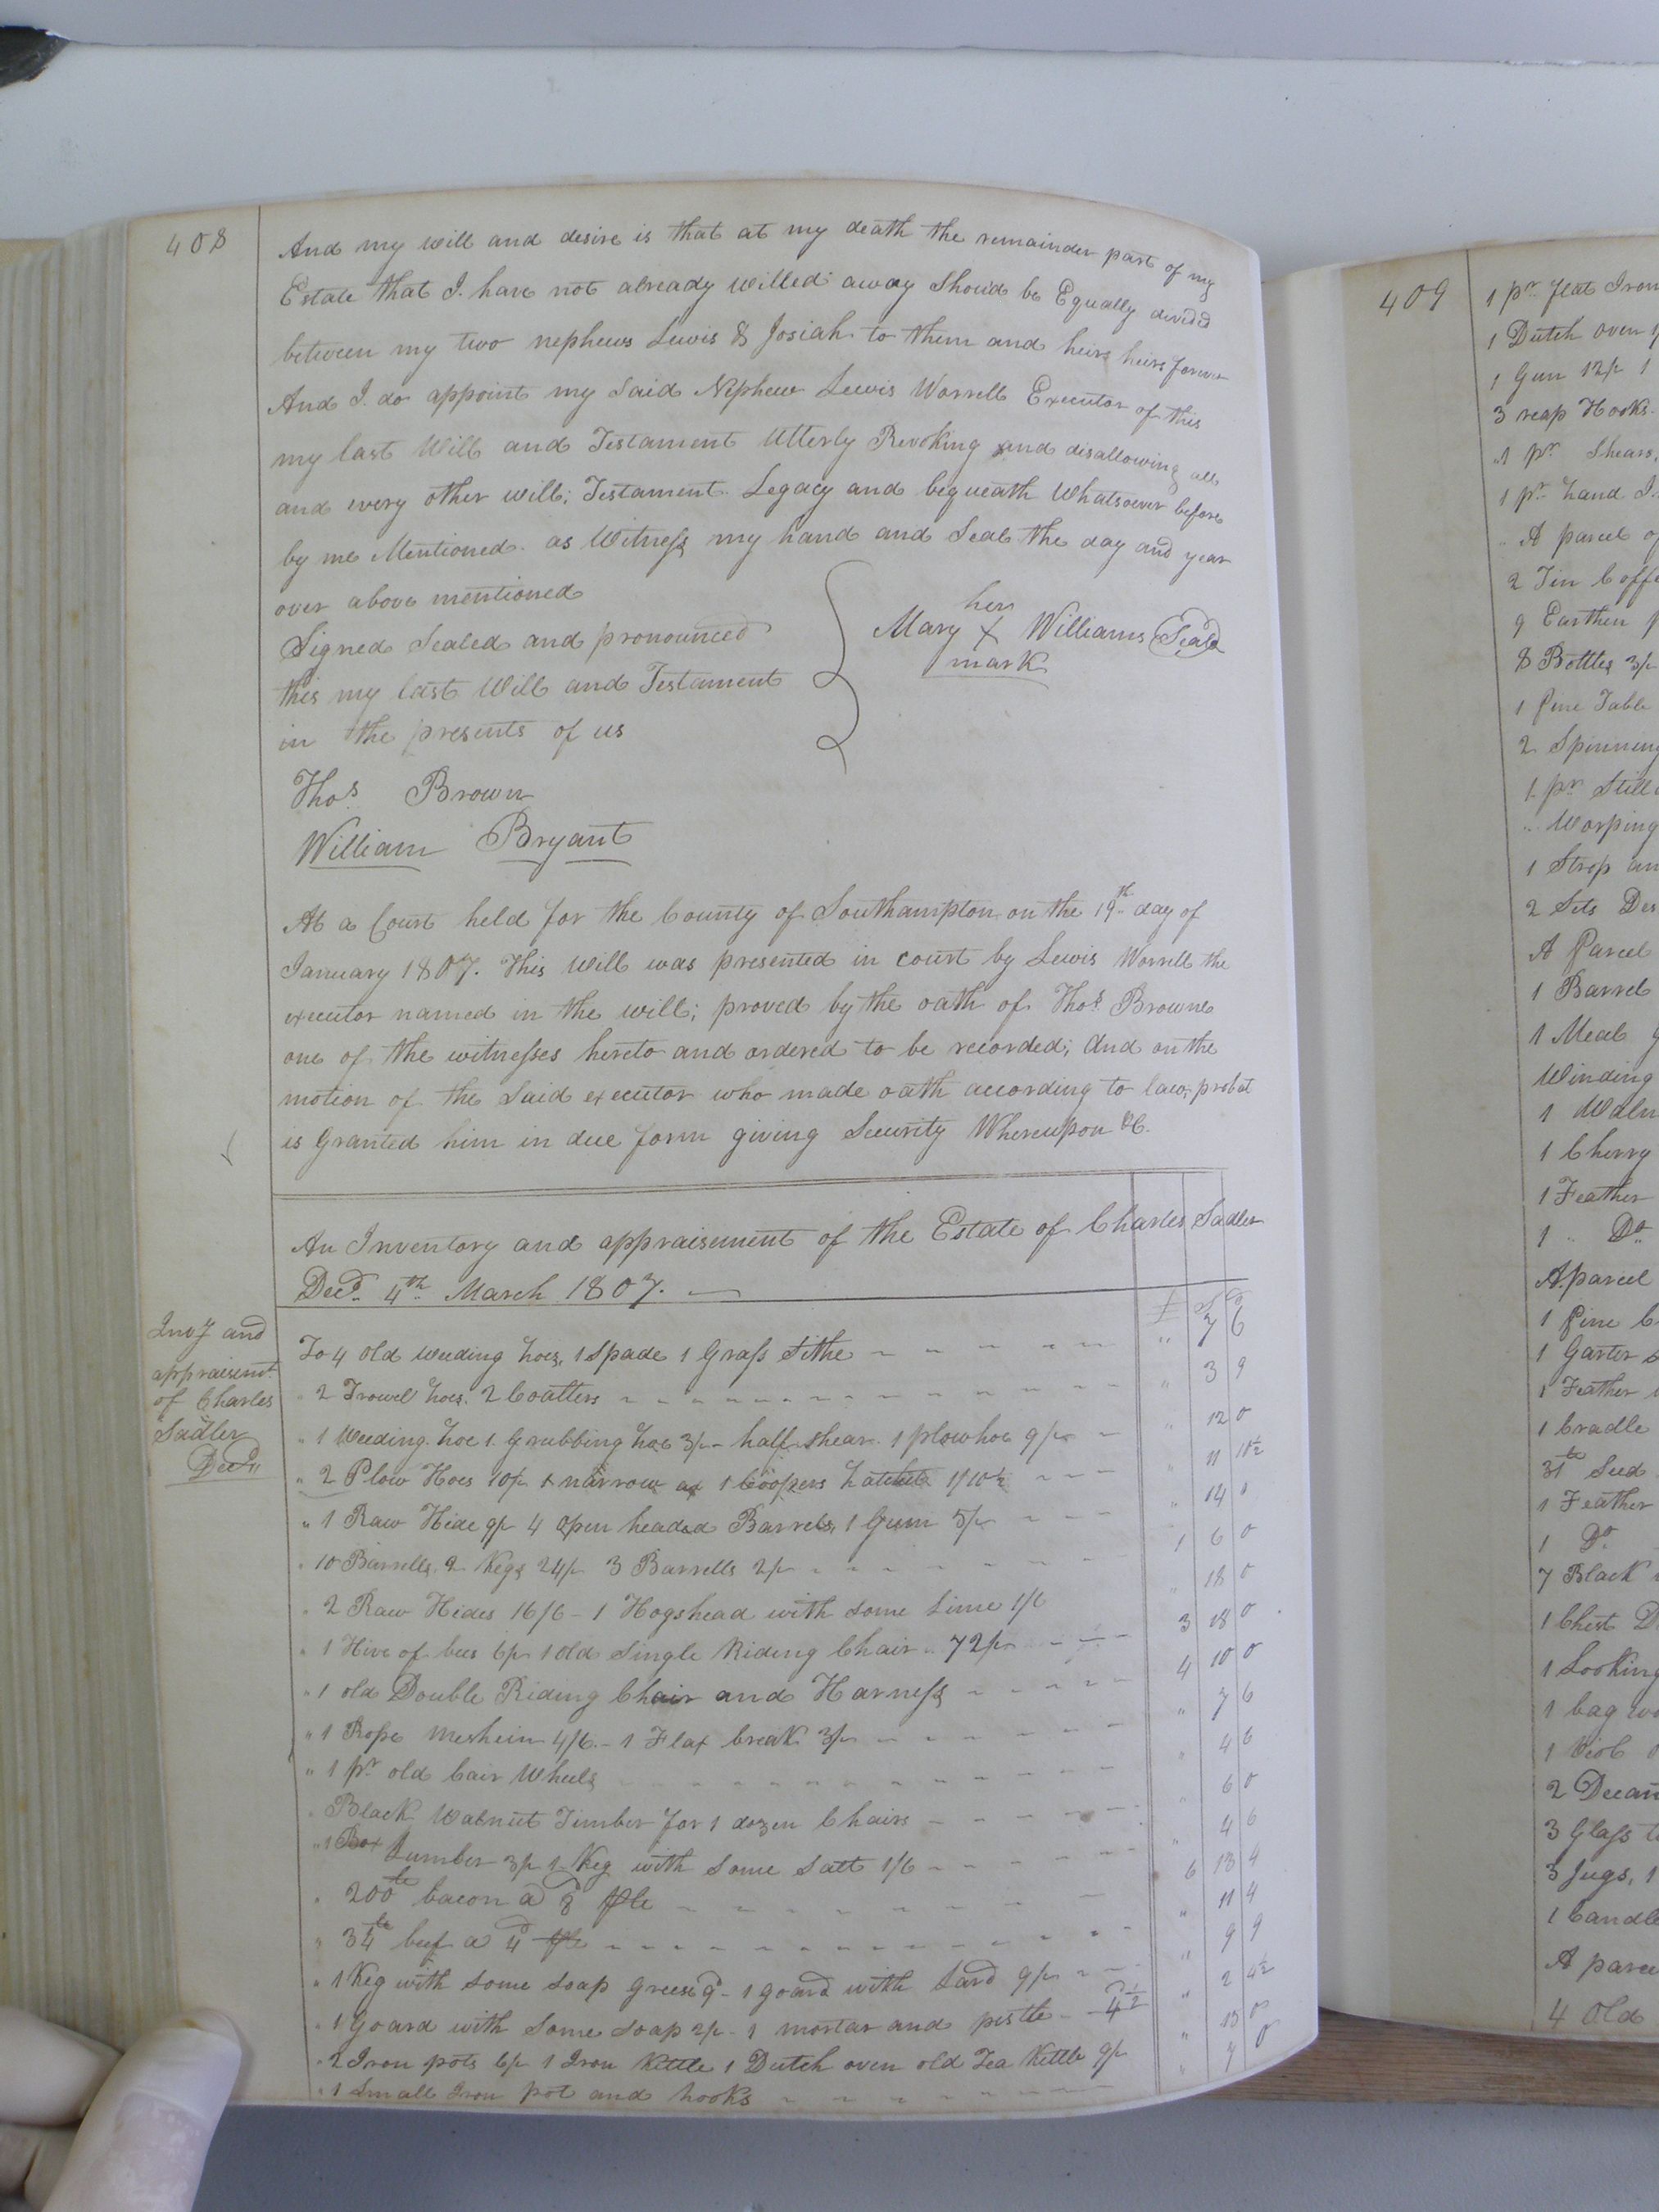 408
And my will and desire is that at my death the remainder part of my
Estate that I have not already Willed away Should be Equally divided
between my two nephews Lewis & Josiah to them and heirs heirs forever
And I do appoint my Said Nephew Lewis Worrell Executor of this
my last Will and Testament Utterly Revoking and disallowing all
and every other will, Testament Legacy and bequeath Whatsoever before
by me Mentioned. as Witness my hand and Seal the day and year
over above mentioned
Signed Sealed and pronounced
this my last Will and Testament
in the presents of us
her
Mary X Williams Seald
mark
Thos. Brown
William Bryant
At a Court held for the County of Southampton on the 19th day of
January 1807. This Will was presented in court by Lewis Worrell the
executor named in the will; proved by the oath of Thos. Browne
one of the witnesses hereto and ordered to be recorded; And on the
motion of the Said executor who made oath according to law, probat
is Granted him in due form giving Security Whereupon &C.
An Inventory and appraisement of the Estate of Charles Sadler
Decd. 4th March 1807.
Invy and
appraisemt
of Charles
Sadler
Decd
£ S D
To 4 old weeding hoes, 1 Spade 1 Grass Sithe " 7 6
" 2 Trowel hoes. 2 Coatters " 3 9
" 1 Weeding hoe 1. Grubbing hoe 3/- half shear. 1 plow hoe 9/- " 12 0
" 2 Plow Hoes 10/- 1 narrow ax 1 Coopers hatchet 1/10½ " 11 10½
" 1 Raw Hide 9/- 4 Open headed Barrels, 1 Gum 5/- " 14 1
" 10 Barrells, 2 Kegs 24/- 3 Barrells 2/- 1 6 0
" 2 Raw Hides 16/6 - 1 Hogshead with some Lime 1/6 " 18 0
" 1 Hive of bees 6/- 1 old Single Riding Chair 72/- 3 18 0
" 1 old Double Riding Chair and Harness 4 10 0
" 1 Rope Meshein 4/6 - 1 Flax break 3/- " 7 6
" 1 pr old Cair Wheels " 4 6
" Black Walnut Timber for 1 dozen Chairs " 6 0
" 1 Box Lumber 3/- 1 Keg with some Salt 1/6 " 4 6
" 200 lb bacon a 8d 6 13 4
" 34 lb beef a 4d " 11 4
" 1 Keg with some Soap Greese 9d - 1 goard with Lard 9/- " 9 9
" 1 Goard with some soap 2/- 1 mortar and pestle 4½d " 2 4½
" 2 Iron pots 6/- 1 Iron Kettle 1 Dutch oven old Tea Kettle 9/- " 15 0
" 1 Small Iron pot and hooks " 7 0
409
1 pr. flat Iron
1 Dutch oven
1 Gun 12/- 1
3 reap Hooks
1 pr. Shears,
1 pr. hand
A parcel of
2 Tin Coffe
9 Earthen
8 Bottles 3/-
1 Pine Table
2 Spinning
1 pr. Still
Worping
1 Strop an
2 Sets
A Parcel
1 Barrel
1 Meal
Winding
1 Waln
1 Cherry
1 Feather
1 " Do.
A parcel
1 Pine
1 Garter
1 Feather
1 Cradle
31 lb Seed
1 Feather
1 Do
7 Black
1 Chest
1 Looking
1 bag
1 Viol
2 Decan
3 Glass
3 Jugs, 1
1 Candle
A parce
4 Old